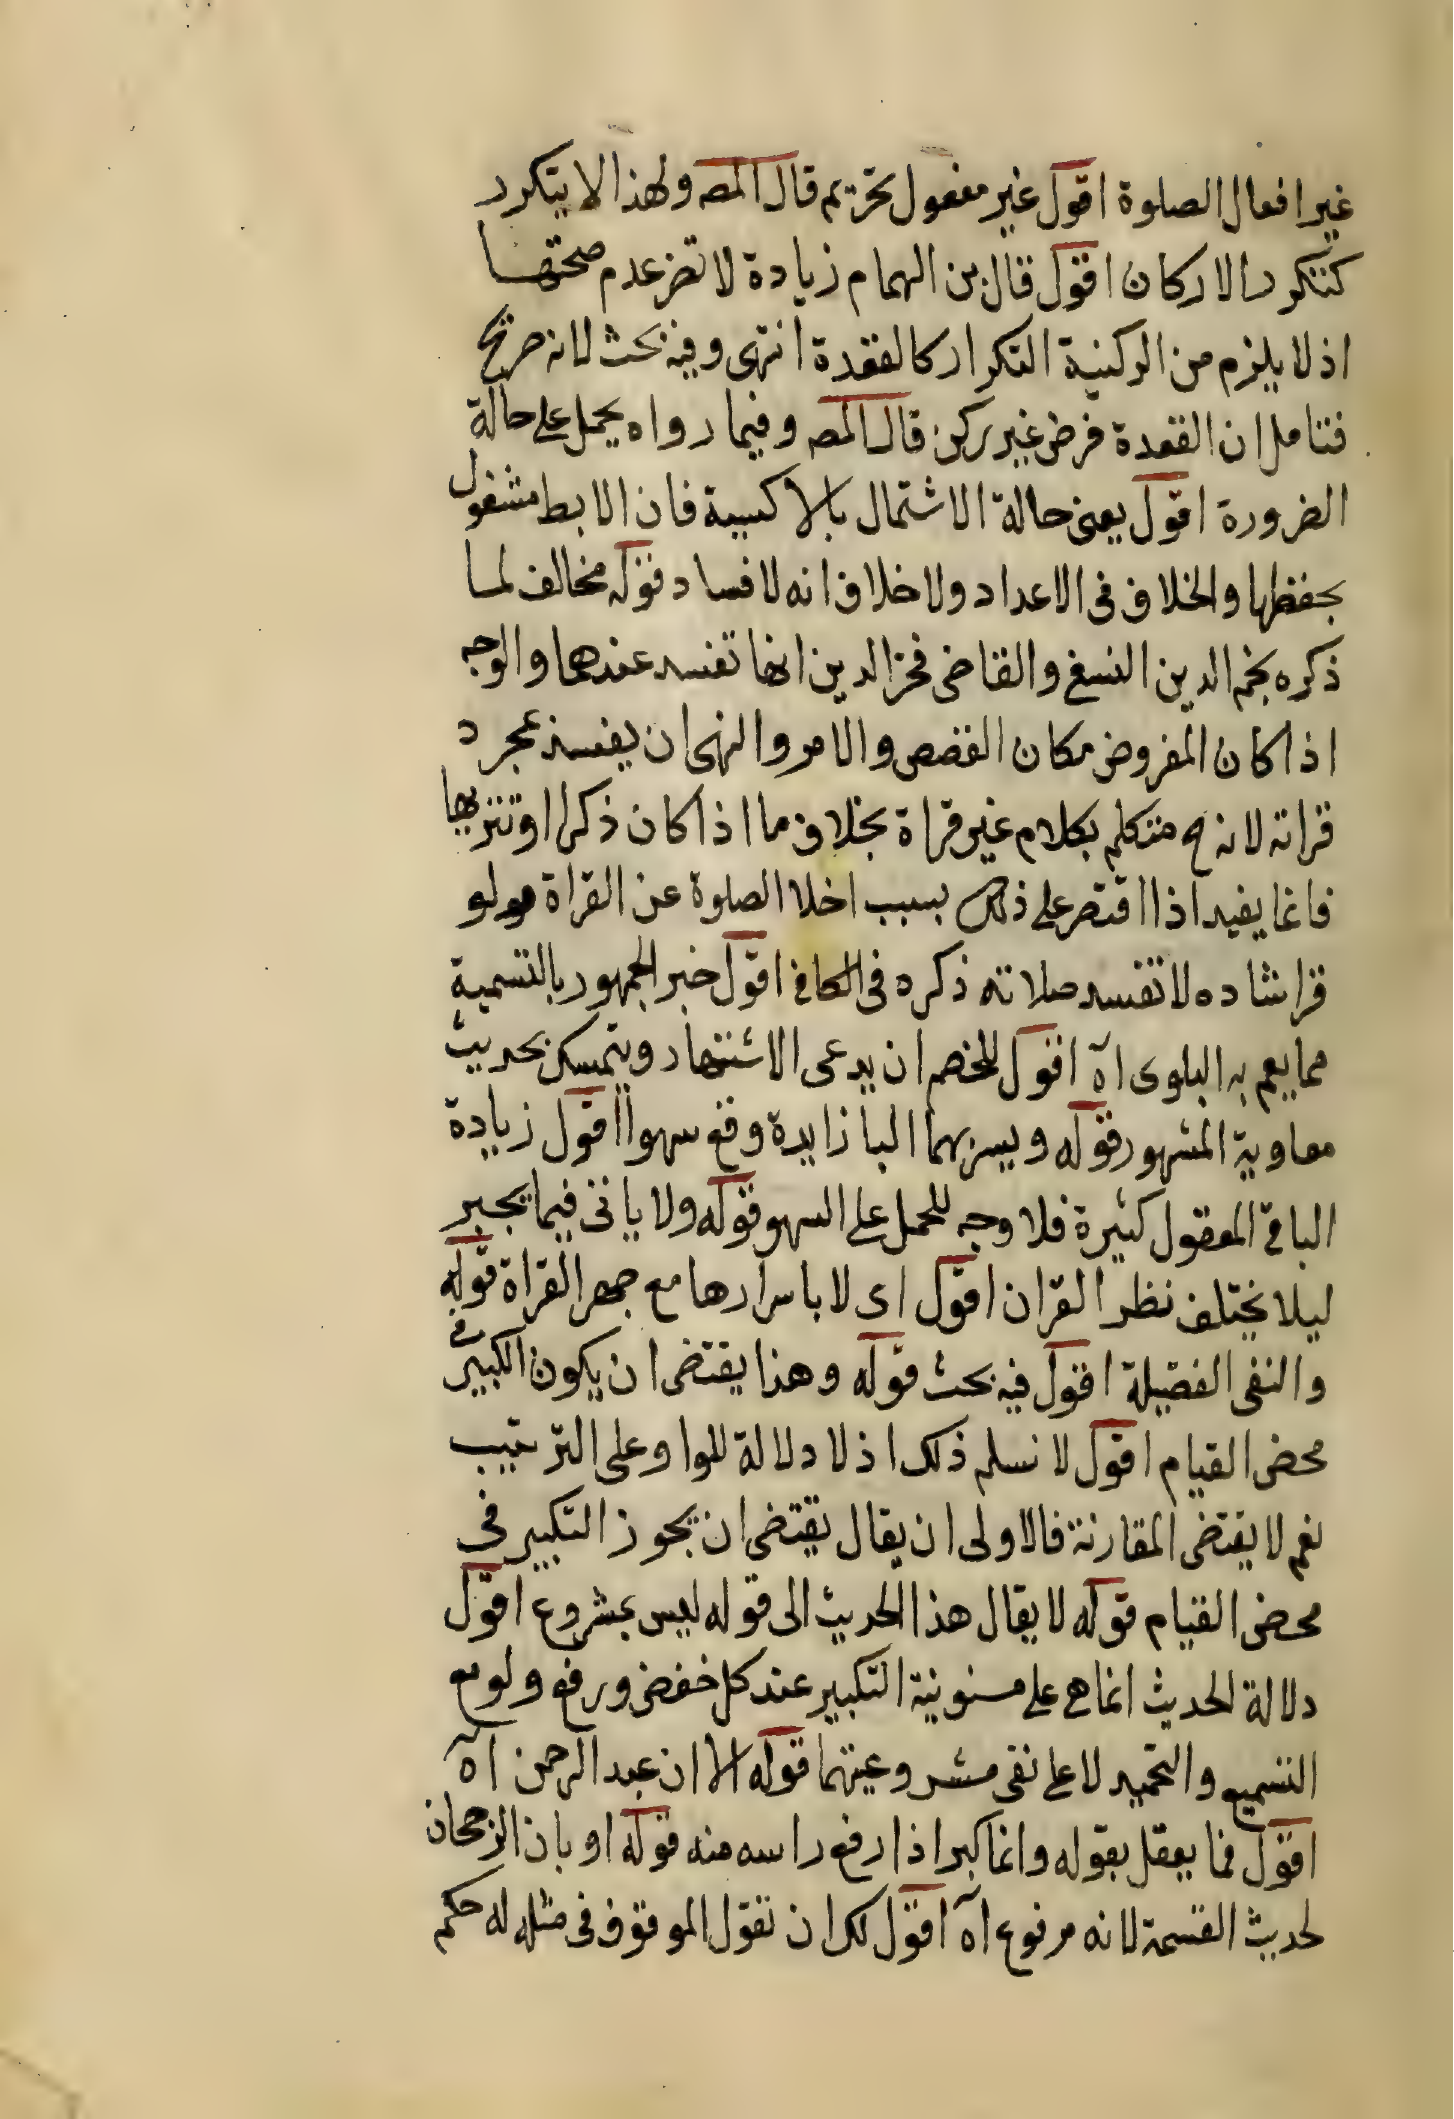 غير افعال الصلوة اقول غير مفعول تحريم قال المصه ولهذا لا يتكرر
كتكرر الاركان اقول قال بن الهمام زيادة لا تضر عدم صحتها
اذ لا يلزم من الركنية التكرار كالقعدة انتهى وفيه بحث لانه صرح
فتامل ان القعدة فرض غير ركن قال المصه وفيما رواه يحمل على حالة
الضرورة اقول يعنى حالة الاشتمال بالاكسية فان الابط مشغول
بحفظها والخلاف فى الاعداد ولا خلاف انه لا فساد قوله مخالف لما
ذكره نجم الدين النسفى والقاضى فخر الدين انها تفسد عندهما والوجه
اذا كان المفروض مكان القصص والامر والنهى ان يفسد بمجرد
قراته لانه ح متكلم بكلام غير قراة بخلاف ما اذا كان ذكرا او تنزيها
فانما يفيد اذا اقتصر على ذلك بسبب اخلا الصلوة عن القراة ولو
قرا شاده لا تفسد صلاته ذكره فى الكافى اقول خبر الجمهور بالتسمية
مما يعم به البلوى اه اقول للخصم ان يدعى الاشتهار ويتمسك بحديث
معاوية المشهور قوله ويسر بهما البا زايدة وقع سهوا اقول زيادة
البا فى المعقول كثيرة فلا وجه للحمل على السهو قوله ولا ياتى فيما يجبر
ليلا يختلف نظر القران اقول اى لا باسرارها مع جهر القراة قوله
والنفى الفضيلة اقول فيه بحث قوله وهذا يقتضى ان يكون الكبير فى
محض القيام اقول لا نسلم ذلك اذ لا دلالة للواو على الترتيب
نعم لا يقتضى المقارنة فالاولى ان يقال يقتضى ان يجوز التكبير فى
محض القيام قوله لا يقال هذا الحديث الى قوله ليس بمشروع اقول
دلالة الحديث انما هى على مسنونية التكبير عند كل خفض ورفع ولو مع
التسميع والتحميد لا على نفى مشروعيتهما قوله الا ان عبد الرحمن اه
اقول فما يعقل بقوله وانما كبر اذا رفع راسه منه قوله او بان الرجحان
لحديث القسمة لانه مرفوع اه اقول لك ان تقول الموقوف فى مثله له حكم